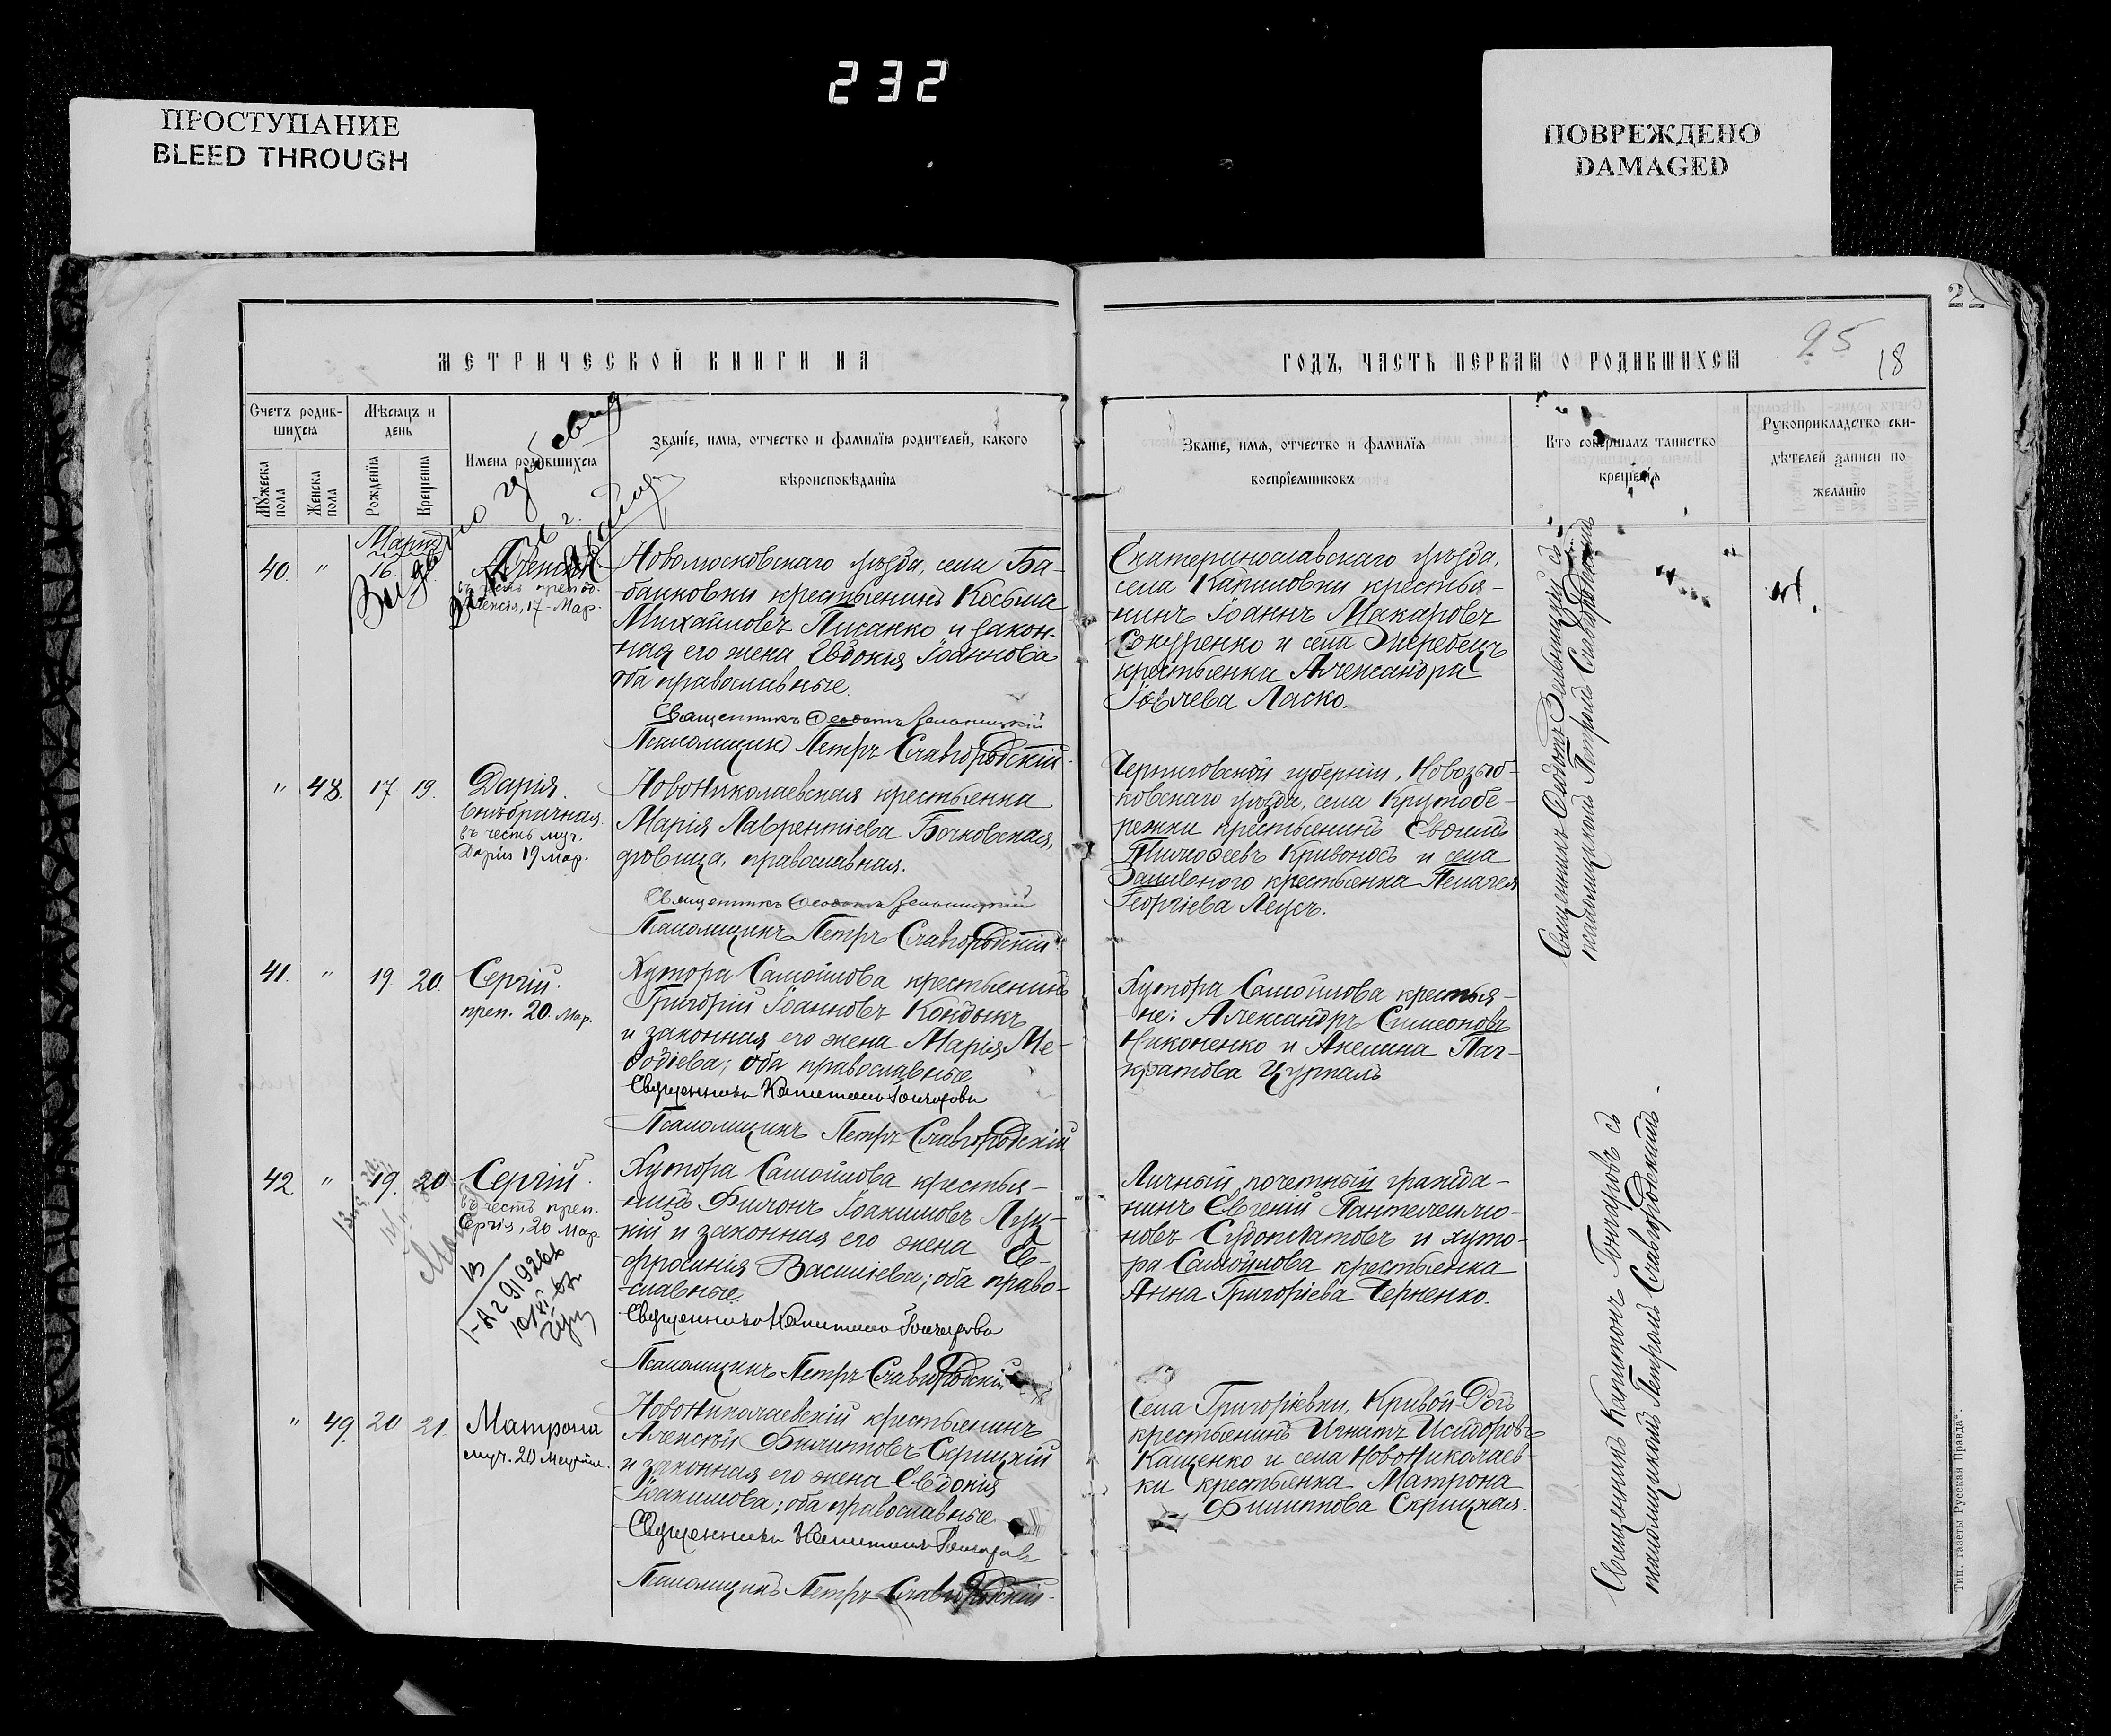 232
ПРОСТУПАНИЕ
BLEED THROUGH
ПОВРЕЖДЕНО
DAMAGED
22
95
18
МЕТРИЧЕСКОЙ КНИГИ НА
ГОДЪ, ЧАСТЬ ПЕРВАЯ О РОДИВШИХСЯ
Счетъ родив-
шихся
Мужеска пола
Женска пола
Мѣсяцъ и
день
Рожденія
Крещенія
Имена родившихся
Званіе, имя, отчество и фамилія родителей, какого
вѣроисповѣданія
Званіе, имя, отчество и фамилія
воспріемниковъ
Кто совершалъ таинство
крещенія
Рукоприкладство сви-
дѣтелей записи по
желанію
Мартъ
40. " 16.
Алексій
Алексія, 17 Мар.
Новомосковскаго уѣзда, села Ба-
банковки крестьянинъ Косьма
Михайловъ Писанко и закон-
ная его жена Евдокія Іоаннова
оба православные.
Священникъ Ѳеодотъ Зельницкій
Псаломщикъ Петръ Славгородскій.
Екатеринославскаго уѣзда,
села Капиловки крестья-
нинъ Іоаннъ Макаровъ
Сокуренко и села Жеребецъ
крестьянка Александра
Іовлева Ласко.
" 48. 17 19.
Дарія.
внѣбрачная.
въ честь муч.
Даріи 19 мар.
НовоНиколаевская крестьянка
Марія Лаврентіева Бочковская,
вдовица, православная.
Священникъ Ѳеодотъ Зельницкій
Псаломщикъ Петръ Славгородскій.
Черниговской губерніи, Новозыб-
ковскаго уѣзда, села Крутобе-
режки крестьянинъ Евѳимъ
Тимоѳеевъ Кривоносъ и села
Заливного крестьянка Пелагея
Георгіева Леусъ.
Священникъ Ѳеодотъ Зельницкій съ
псаломщикомъ Петромъ Славгородскимъ
41. " 19. 20.
Сергій.
преп. 20. Мар.
Хутора Самойлова крестьянинъ
Григорій Іоанновъ Кондыкъ
и законная его жена Марія Ме-
ѳодіева; оба православные
Священникъ Капитонъ Гончаровъ
Псаломщикъ Петръ Славгородскій
Хутора Самойлова крестья-
не: Александръ Симеоновъ
Никоненко и Акелина Пан-
кратова Цуркалъ
42. " 19. 20.
Сергій.
въ честь преп.
Сергія, 20 Мар.
Хутора Самойлова крестья-
нинъ Филонъ Іоакимовъ Луц-
кій и законная его жена Ев-
фросинія Василіева; оба право-
славные.
Священникъ Капитонъ Гончаровъ
Псаломщикъ Петръ Славгородскій
Личный почетный гражда-
нинъ Евгеній Пантелеимо-
новъ и хуто-
ра Самойлова крестьянка
Анна Григоріева Черненко.
" 49. 20 21.
Матрона
муч. 20
НовоНиколаевскій крестьянинъ
Алексѣй Филипповъ Скрицкій
и законная его жена Евдокія
Іоакимова; оба православные
Священникъ Капитонъ Гончаровъ
Псаломщикъ Петръ Славгородскій.
Села Григорьевки, Кривой-Рогъ
крестьянинъ Игнатъ Исидоровъ
Кащенко и села НовоНиколаев-
ки крестьянка Матрона
Филиппова Скрицкая.
Священникъ Капитонъ Гончаровъ съ
псаломщикомъ Петромъ Славгородскимъ.
Тип. газеты „Русская Правда".